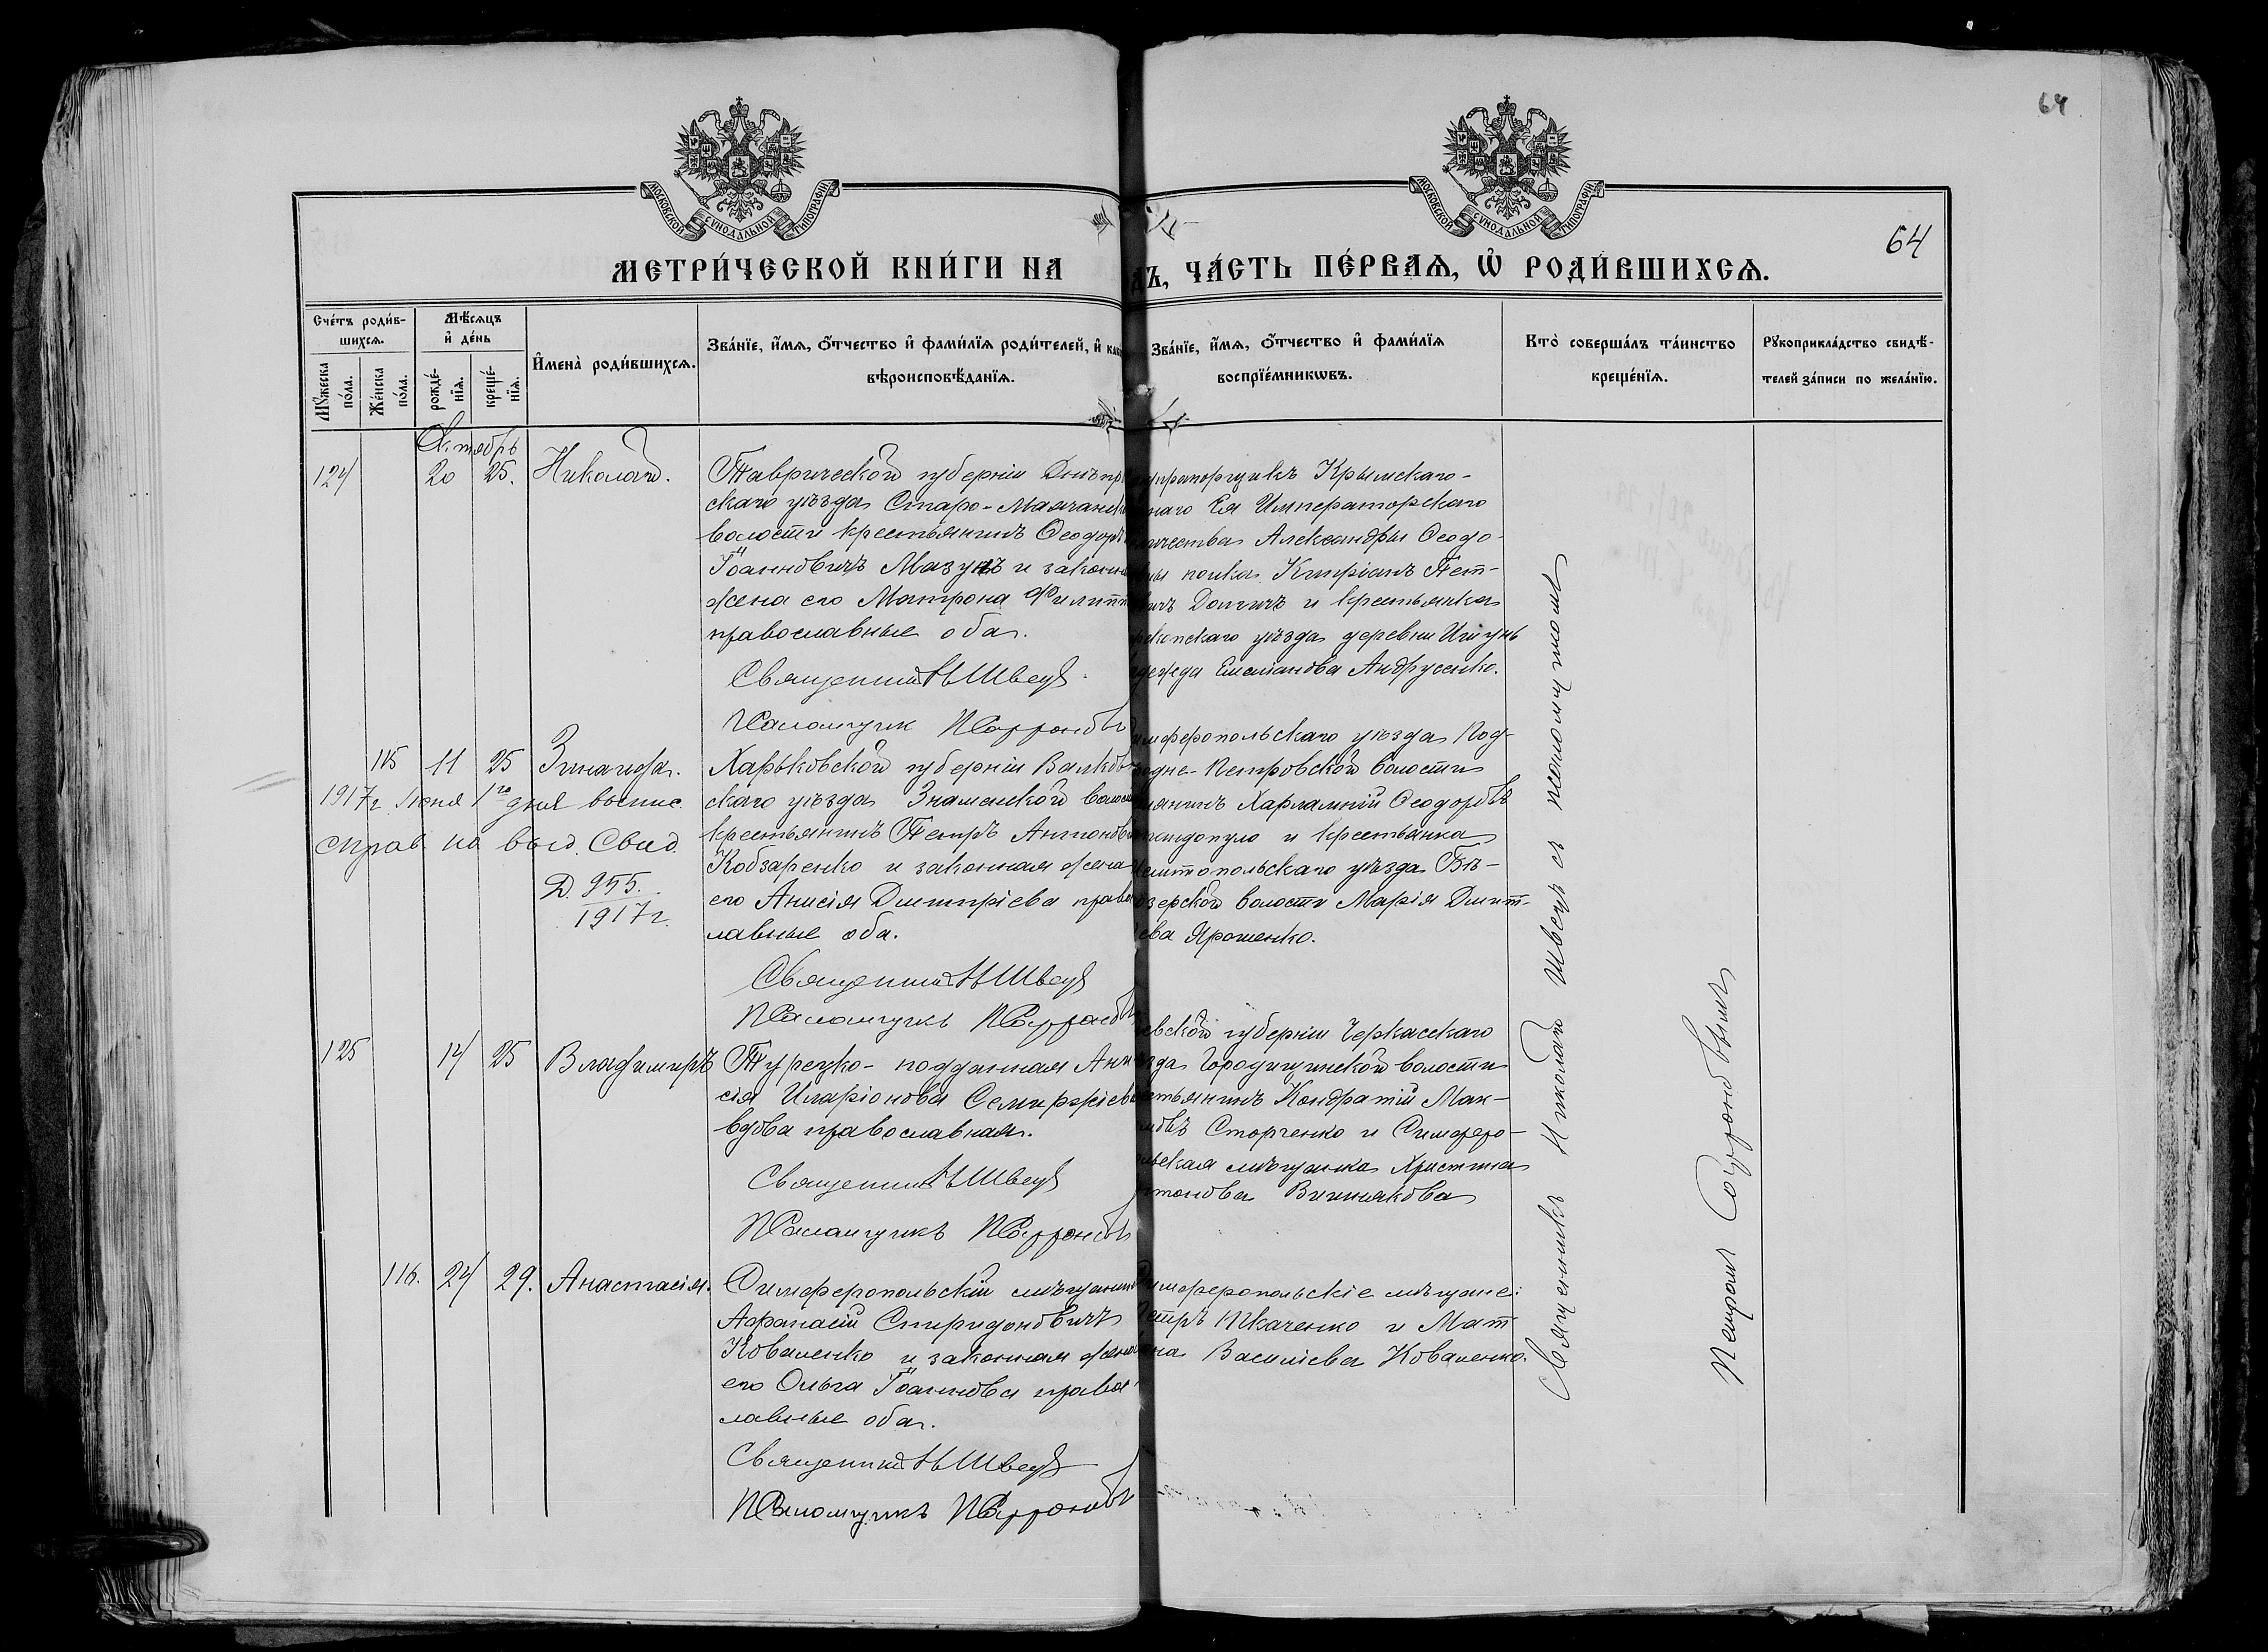 64
МОСКОВСКОЙ СѴНОДАЛЬНОЙ ТИПОГРАФІИ
МОСКОВСКОЙ СѴНОДАЛЬНОЙ ТИПОГРАФІИ
64
МЕТРИ́ЧЕСКОЙ КНИ́ГИ НА
ДЪ, ЧА́СТЬ ПЕ́РВАѦ, Ѡ҆ РОДИ́ВШИХСѦ.
Сче́тъ роди́в-
шихсѧ.
Мꙋжеска по́ла.
Же́нска по́ла.
Мѣ́сѧцъ
и҆ де́нь
рожде́-
нїѧ.
креще́-
нїѧ.
И҆мена̀ роди́вшихсѧ.
Зва́нїе, и҆́мѧ, ѻ҆́тчество и҆ фами́лїѧ роди́телей, и҆ как
вѣроисповѣ́данїѧ.
Зва́нїе, и҆́мѧ, ѻ҆́тчество и҆ фами́лїѧ
воспрїе́мникѡвъ.
Кто̀ соверша́лъ та́инство
креще́нїѧ.
Рꙋкоприкла́дство свидѣ́-
телей за́писи по жела́нїю.
Октябрь
124 20 25. Николай.
Таврической губерніи Днѣпр
скаго уѣзда Старо-Маячк
волости крестьянинъ Ѳеодоръ
Іоанновичъ Мазу и законн
жена его Матрона Филипп
православные оба.
Священникъ Н Швецъ
Псаломщик П Софроновъ
прапорщикъ Крымскаго-
наго Ея Императорскаго
личества Александры Ѳеодо-
ны полка Кипріанъ Пет-
вичъ Долгичъ и крестьянка
рекопскаго уѣзда деревни Ишунь
дежда Емеліанова Андрусенко.
115 11 25 Зинаида.
1917г. Іюня 1го дня выпис.
справ на выд. Свид.
Д. 955.
1917г.
Харьковской губерніи Валков
скаго уѣзда Знаменской волос
крестьянинъ Петръ Антонов
Кобзаренко и законная жена
его Анисія Димитріева право
лавные оба.
Священникъ Н Швецъ
Псаломщикъ П Софроновъ
имферопольскаго уѣзда Под-
родне-Петровской волости
щанинъ Харлампій Ѳеодоровъ
пандопуло и крестьянка
елитопольскаго уѣзда Бѣ-
озерской волости Марія Димит-
ева Ярошенко.
125 14 25 Владимиръ
Турецко-подданная Ани
сія Иларіонова Семирзіев
вдова православная.
Священникъ Н Швецъ
Псаломщикъ П Софроновъ
евской губерніи Черкасскаго
ѣзда Городищенской волости
стьянинъ Кондратій Мак-
мовъ Сторченко и Симферо-
льская мѣщанка Христина
тонова Вишнякова
116. 24 29. Анастасія.
Симферопольскій мѣщанинъ
Афанасій Спиридоновичъ
Коваленко и законная жена
его Ольга Іоаннова право
лавные оба.
Священникъ Н Швецъ
Псаломщикъ П Софроновъ
имферопольскіе мѣщане:
Петръ Ткаченко и Мат
она Васильева Коваленко.
Священникъ Николай Швецъ съ псаломщикомъ
Петромъ Софроновымъ